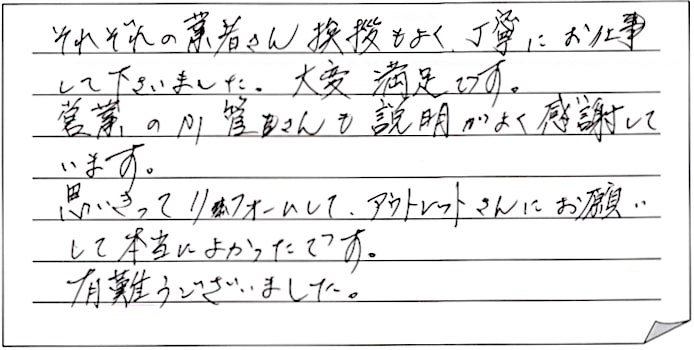 それぞれの業者さん挨拶もよく、丁寧にお仕事
して下さいました。大変 満足です。
営業の さんも説明がよく感謝して
います。
思いきってリフォームして、アウトレットさんにお願い
して本当によかったです。
有難うございました。